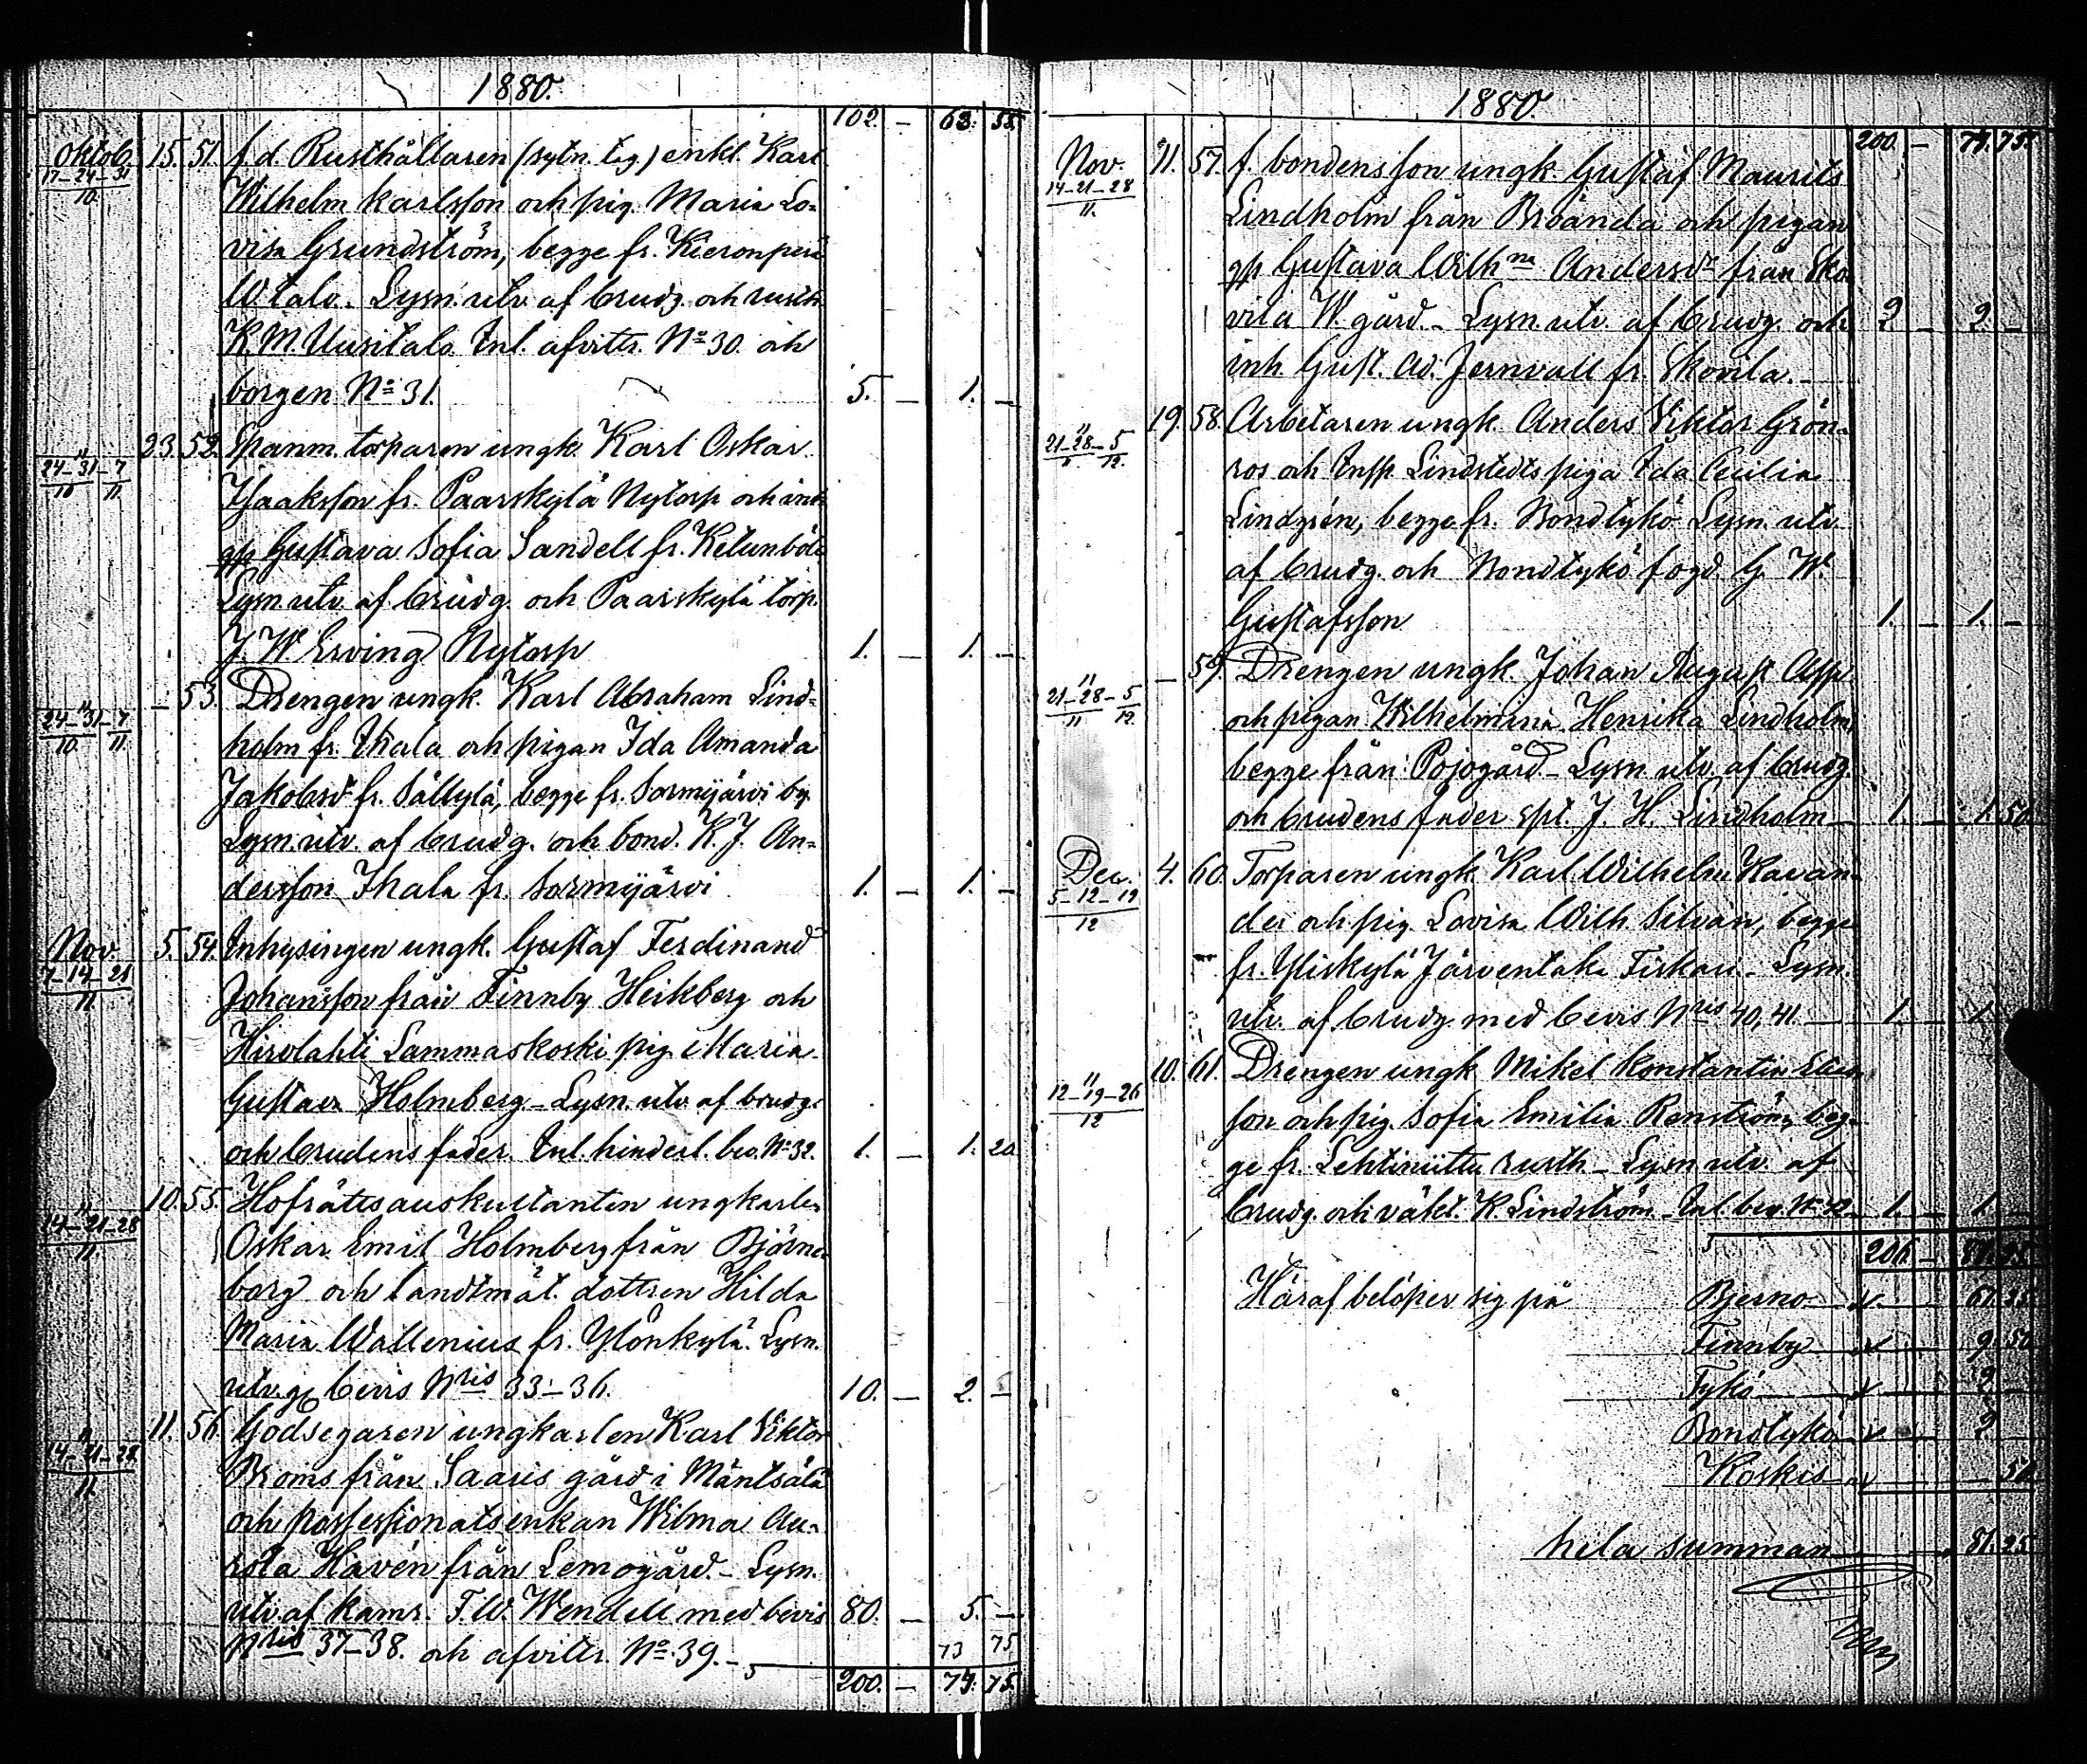 1880.
102. — 63. 55.
Oktob. 15. 51. f.d. Rusthållaren (sytn. tag.) enkl. Karl
17-24-31 Wilhelm Karlsson och pig. Maria Lo-
10. visa Grundström, begge fr. Kieronperä
W. talo. Lysn. utv. af brudg. och rusth.
K. M. Uusitalo. Inl. afvittr. No 30. och
borgen No 31. 5. — 1. —
" 23. 52. Spanm. torparen ungk. Karl Oskar
24-31-7 Isaaksson fr. Paarskylä Nytorp och inh.
10 11. gp Gustava Sofia Sandell fr. Ketunböle
Lysn. utv. af brudg. och Paarskylä torp.
J. W. Erving Nytorp 1. — 1. —
" — 53. Drengen ungk. Karl Abraham Lind-
24-31-7 holm fr. Ihala och pigan Ida Amanda
10. 11. Jakobsd. fr. Sällylä, begge fr. Sormijärvi by.
Lysn. utv. af brudg. och bond. K. J. An-
dersson Ihala fr. Sormijärvi 1. — 1. —
Nov. 5. 54. Inhysingen ungk. Gustaf Ferdinand
7-14-21 Johansson från Finnby Heikberg och
11. Hirvlahti Lammaskoski pig. Maria
Gustava Holmberg — Lysn. utv. af brudg.
och brudens fader. Inl. hinderl. bev. No 32. 1. — 1. 20
" 10. 55. Hofrättsauskultanten ungkarlen
14-21-28 Oskar Emil Holmberg från Björne-
11. borg och landtmät. dottren Hilda
Maria Wallenius fr. Ylönkylä. Lysn.
utv. gm bevis Nris 33-36. 10. — 2. —
" 11. 56. Godsegaren ungkarlen Karl Viktor
14-21-28 Broms från Saaris gård i Mäntsälä
11 och possessionatsenkan Wilma Au-
rora Havén från Lemogård. — Lysn.
utv. af kamr. F. W. Wendell med bevis 80. — 5. —
Nris 37-38. och afvittr. No 39. — 73 75
200. — 73. 75.
1880.
200. — 73. 75.
Nov. 11. 57. f. bondensson ungk. Gustaf Maurits
14-21-28 Lindholm från Broända och pigan
11. gp Gustava Wilhna Andersdr från Sko-
vila W. gård. — Lysn. utv. af brudg. och 2. — 2. —
inh. Gust. Ad. Jernvall fr. Skovila. —
" 19. 58. Arbetaren ungk. Anders Viktor Grön-
21-28-5 ros och Insp. Lindstedts piga Ida Cecilia
11 12. Lindgrén, begge fr. Nordtykö. Lysn. utv.
af brudg. och Nordtykö fogd. G. W.
Gustafsson 1. — 1. —
" — 59. Drengen ungk. Johan August Asp.
21-28-5 och pigan Wilhelmina Henrika Lindholm,
11 12. begge från Pojogård — Lysn. utv. af brudg.
och brudens fader spt. J. H. Lindholm — 1. — 1. 50
Dec. 4. 60. Torparen ungk. Karl Wilhelm Kavan-
5-12-19 der och pig. Lovisa Wilh. Silvan, begge
12 fr. Yliskylä Järventaka Fiskari. — Lysn.
utv. af brudg. med bevis Nris 40, 41. — 1. — 1. —
" 10. 61. Drengen ungk. Mikel Konstantin
12-19-26 son och pig. Sofia Emilia Renström, beg-
12 ge fr. Lehtiniittu rusth. — Lysn. utv. af
brudg. och väkt. K. Lindström. — Inl. bev. No 42 — 1. — 1. —
206. — 81. 25
Häraf belöper sig på Bjerno 67. 25
Finnby 9. 50
Tykö 2 —
Nordtykö 2 —
Koskis — 50
hela summan 81. 25